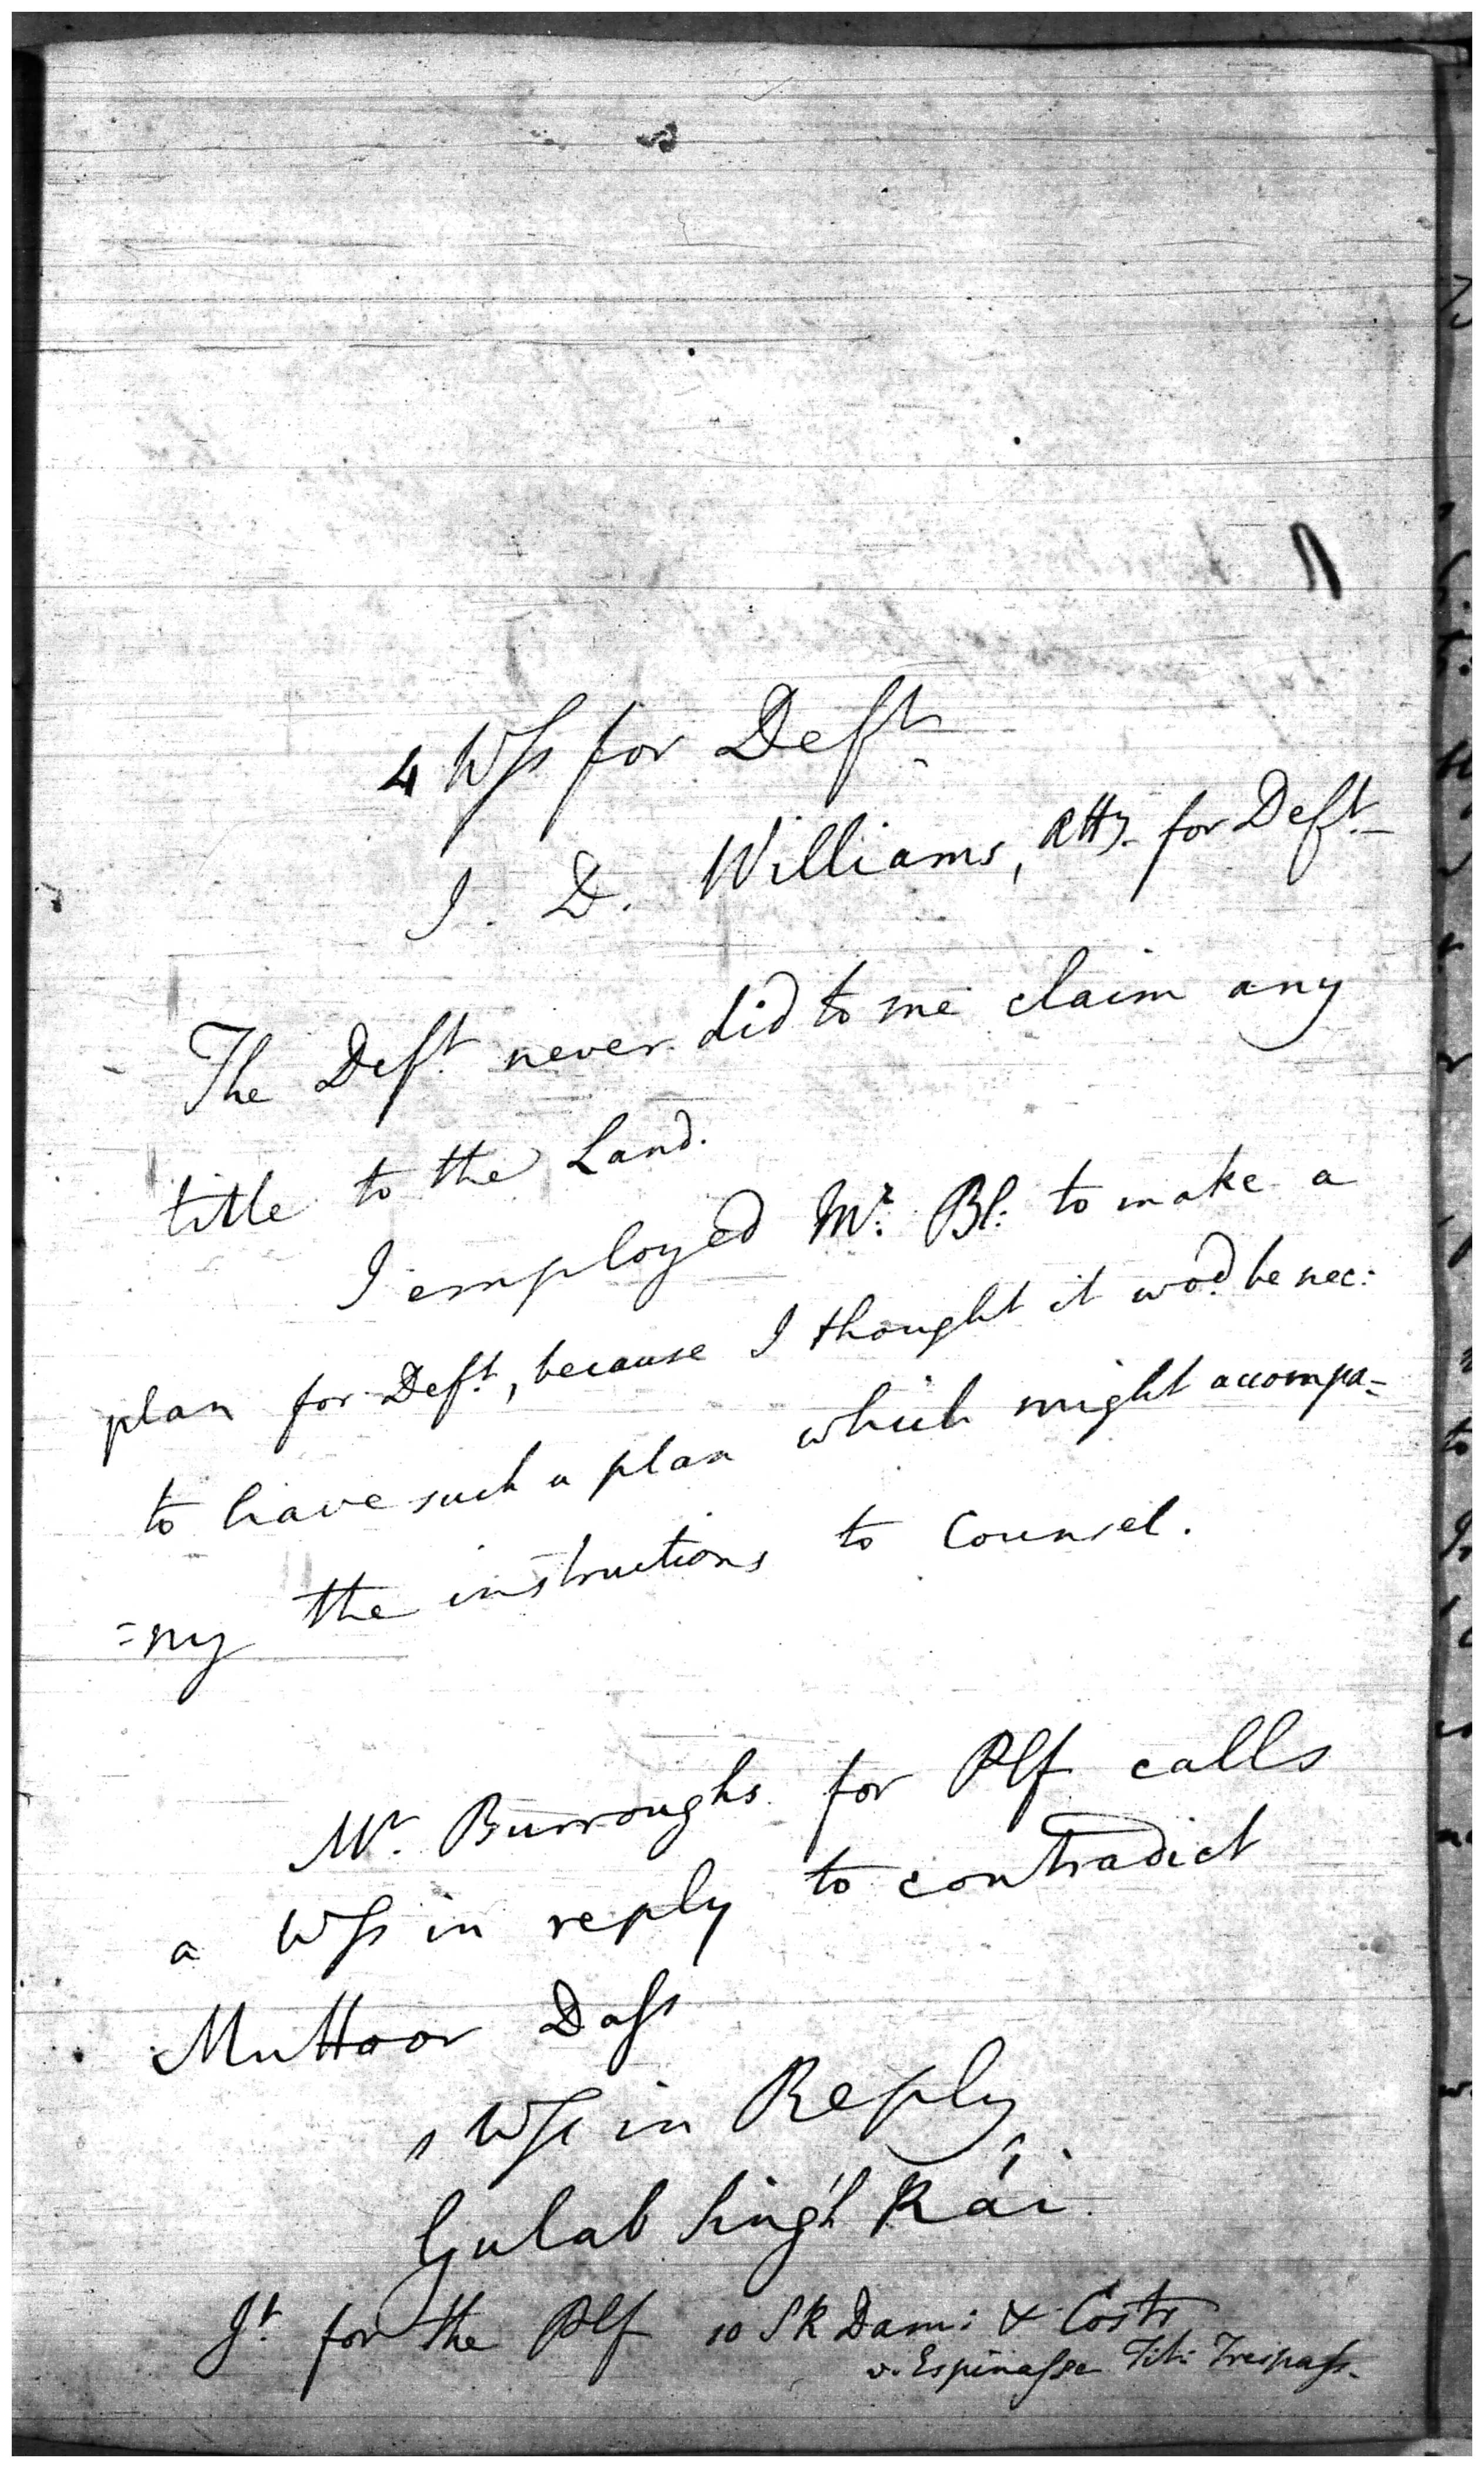 4 Wss for Deft
J. D. Williams, Atty. for Deft.
The Deft. never did to me claim any
title to the Land.
I employed Mr. Bl: to make a
plan for Deft., because I thought it wod. be nec:
to have such a plan which might accompa=
=ny the instructions to Counsel.
Mr. Burroughs for Plf calls
a Wss in reply to contradict
Muttoor Dass
1 Wss in Reply
Gulab Sing'h Rái.
Jt. for the Plf 10 SR Dam: & Costs
v. Espinasse Tit: Trespass.